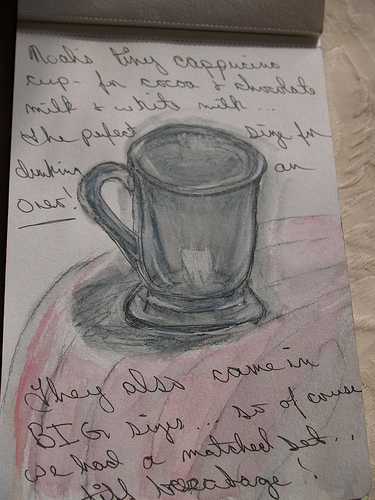 Noah's tiny cappucino
cup - for cocoa & chocolate
milk & white milk ...
the perfect size for
dunking an
oreo!
They also came in
BIG sizes ... so of course
we had a matched set ...
till breakage!